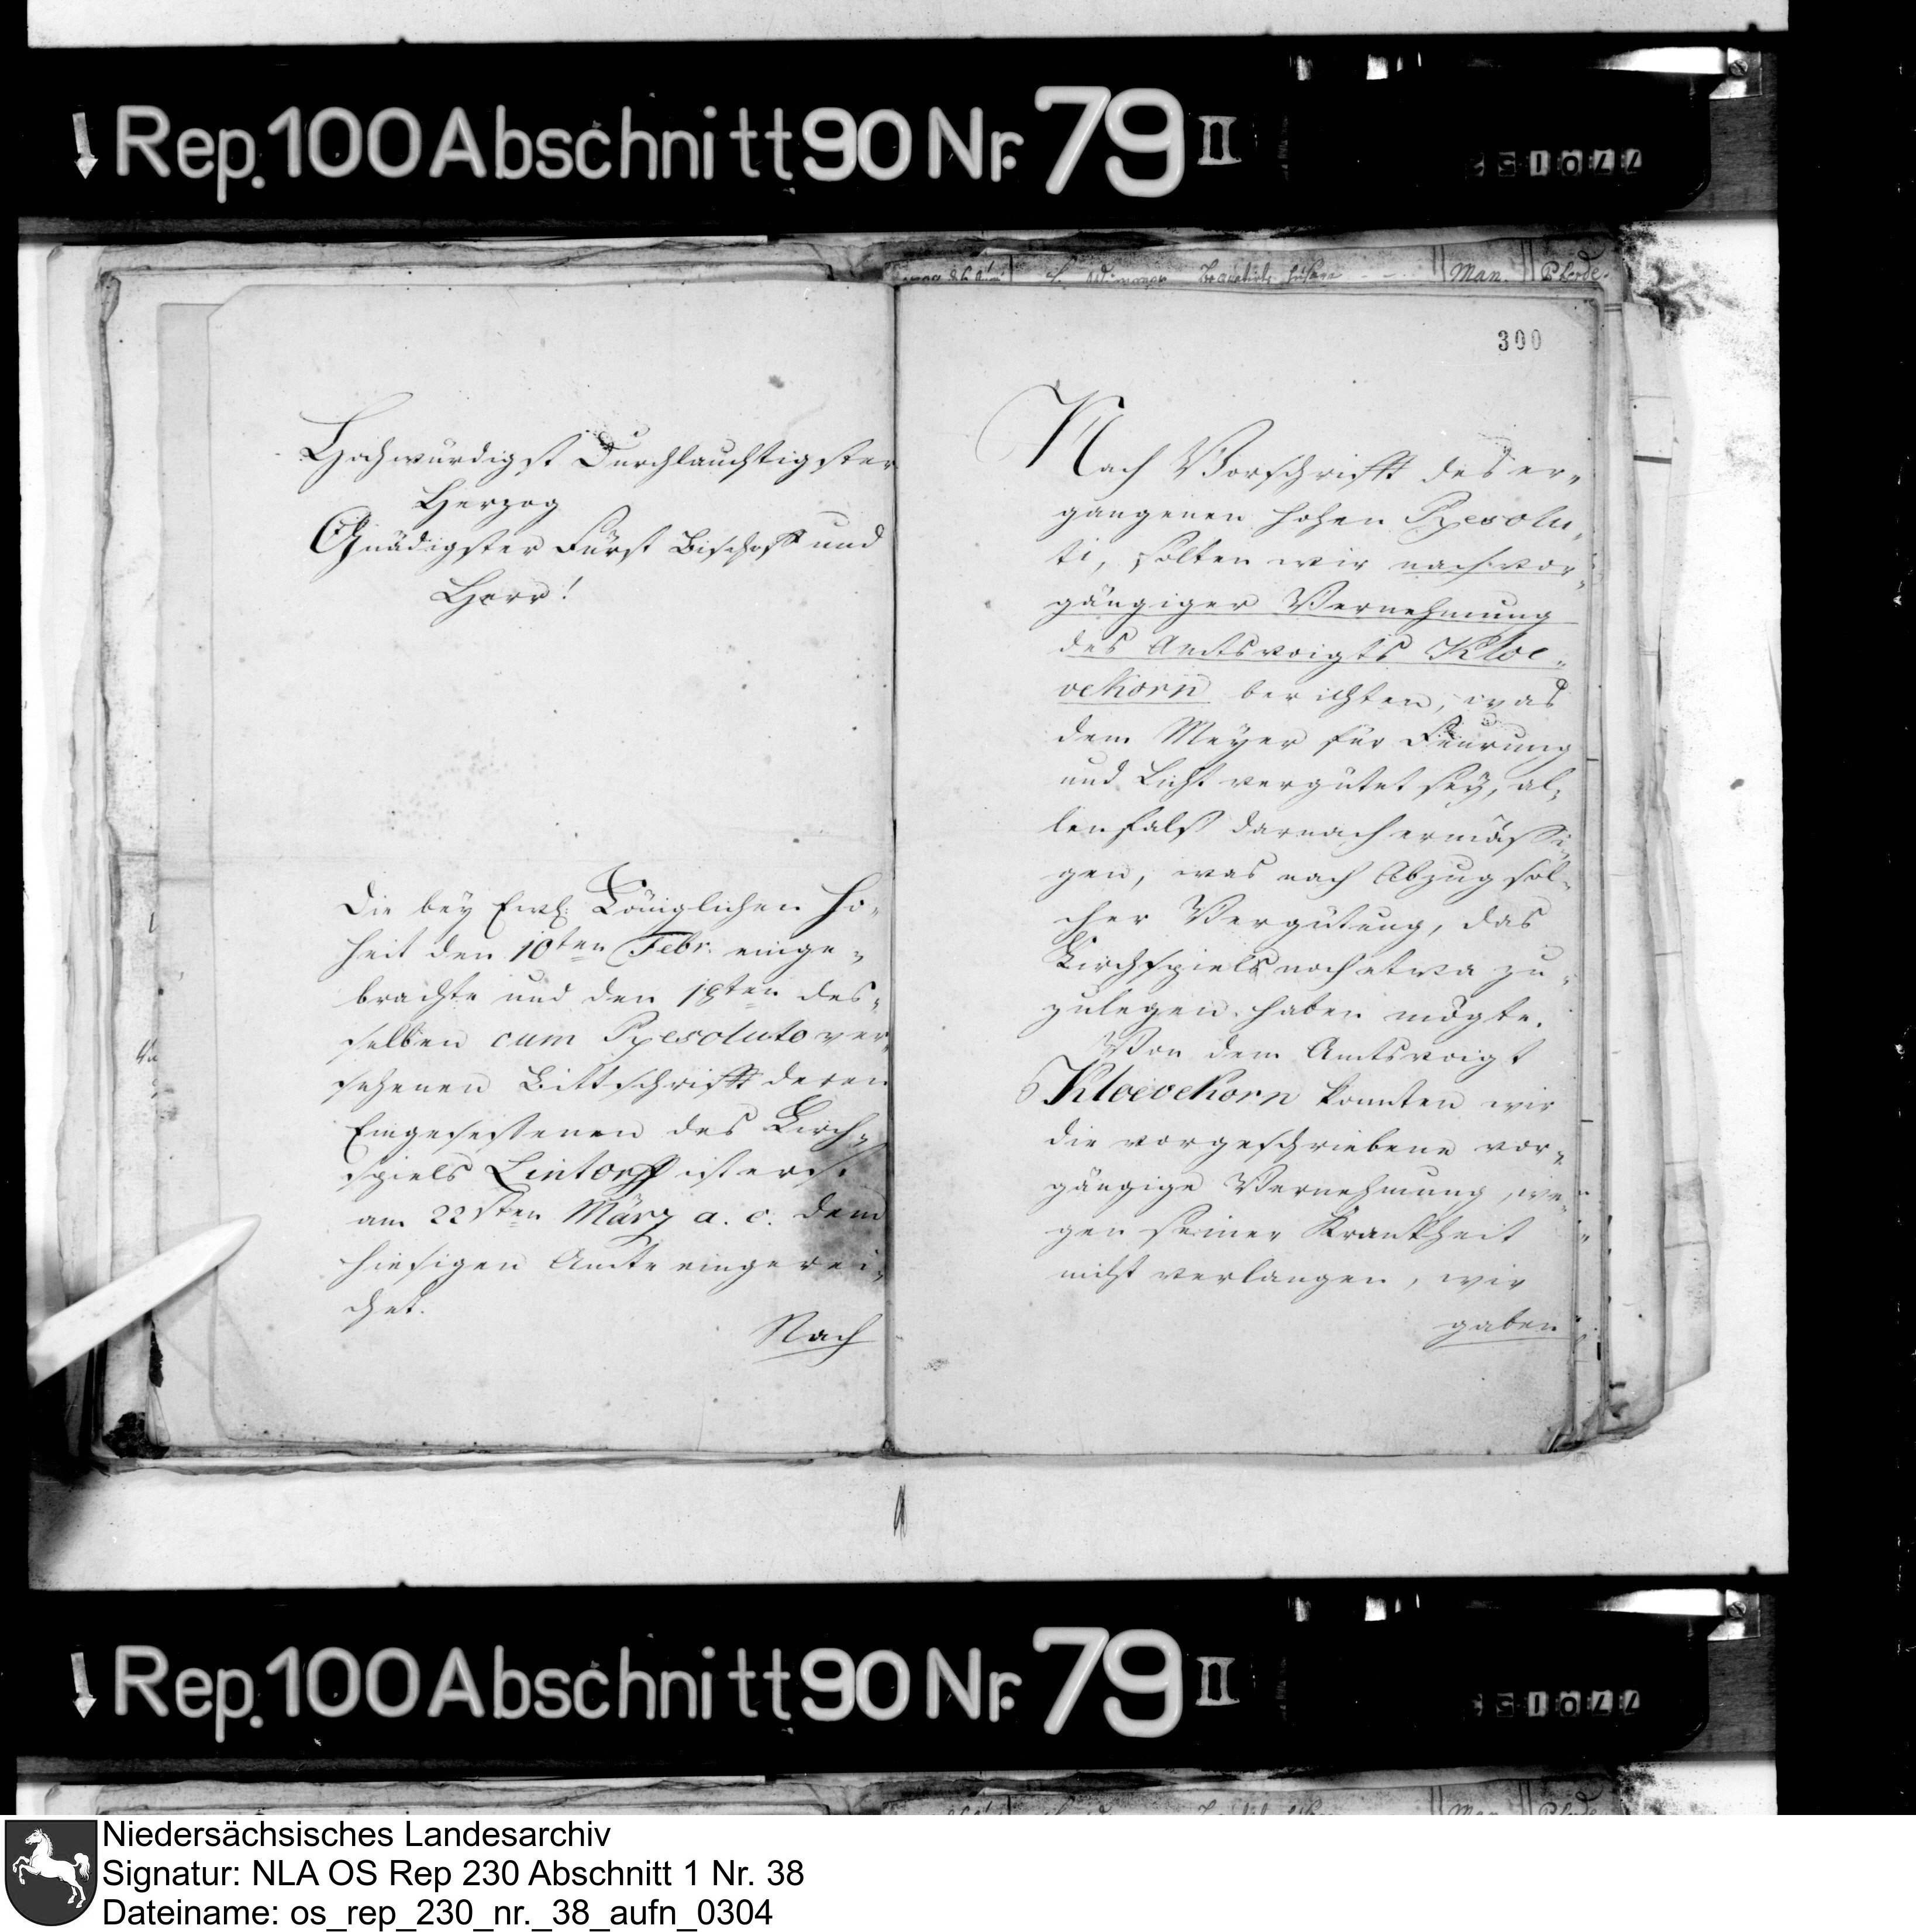 Rep. 100 Abschnitt 90 Nr. 79 II
Man. Pferde.
300
Hochwürdigst Durchlauchtigster
Herzog
Gnädigster Fürst Bischoff und
Herr!
Die bey Ewl. Königlichen Ho-
heit den 10ten Febr. einge-
brachte und den 18ten des-
selben cum Resoluto ver-
sehenen Bittschrifft deren
Eingesessenen des Kirch-
spiels Lintorff ist erst
am 22sten März a. c. dem
hiesigen Amte eingerei-
chet.
Nach
Nach Vorschrifft des er-
gangenen hohen Resolu-
ti, solten wir nach vor-
gängiger Vernehmung
des Amtsvoigts Kloe-
vekorn berichten, was
dem Meyer für Feurung
und Licht vergütet sey, al-
lenfalß darnach ermässi-
gen, was nach Abzug sol-
cher Vergütung, das
Kirchspiels noch etwa zu-
zulegen haben mögte.
Von dem Amtsvoigt
Kloevekorn konnten wir
die vorgeschriebene vor-
gängige Vernehmung, we-
gen seiner Krankheit
nicht verlangen, wir
gaben
Rep. 100 Abschnitt 90 Nr. 79 II
Niedersächsisches Landesarchiv
Signatur: NLA OS Rep 230 Abschnitt 1 Nr. 38
Dateiname: os_rep_230_nr._38_aufn_0304